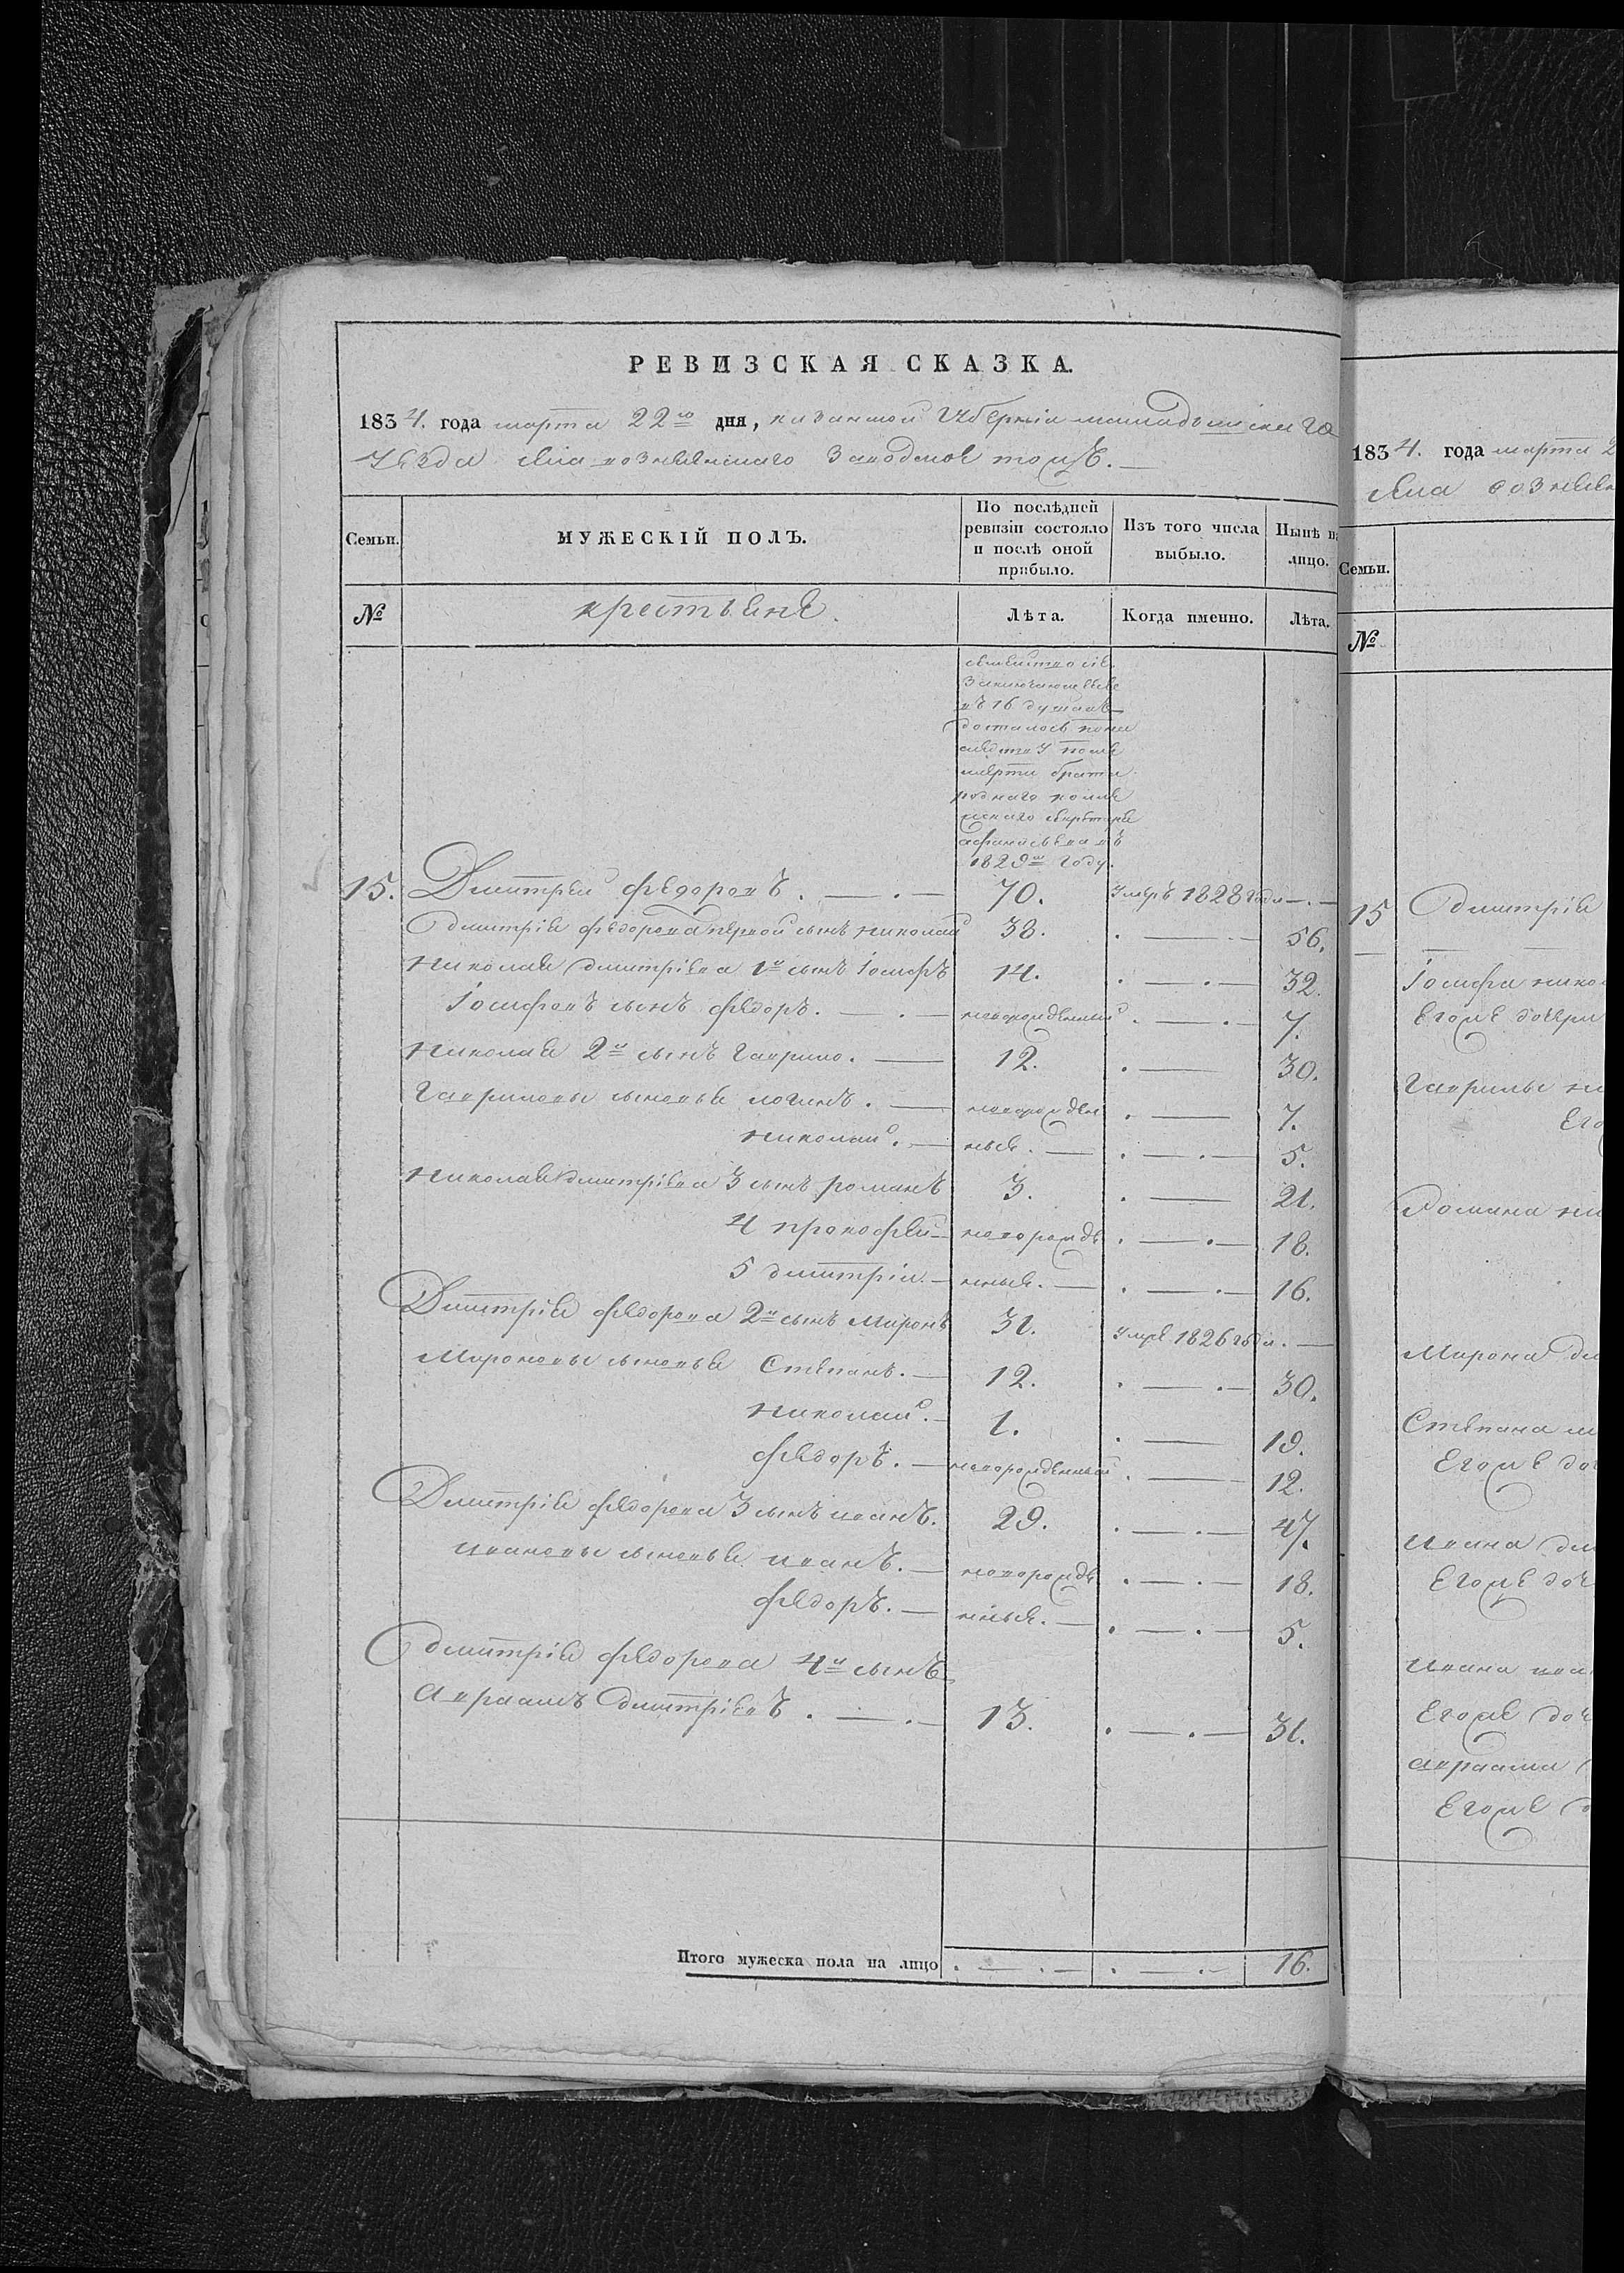 РЕВИЗСКАЯ СКАЗКА.
1834. года марта 22го дня, казанской Губерніи мамадышскаго
уезда села вознесенскаго заводомов тожъ.
Семьи. МУЖЕСКІЙ ПОЛЪ. По послѣдней ревизіи состояло и послѣ оной прибыло. Изъ того числа выбыло. Нынѣ на лицо.
№ крестьяне. Лѣта. Когда именно. Лѣта.
семейство сіе
заключающееся
въ 16 душахъ
досталось пона
следству после
смерти брата
роднаго колле
скаго секретаря
афанасьева въ
1829м году.
15. Дмитрей федоровъ. 70. умръ 1828 года
Дмитрія федорова первой сынъ николай 38. 56.
николая дмитріева 1й сынъ іосифъ 14. 32.
іосифовъ сынъ федоръ. новорожденный 7.
николая 2й сынъ гаврило. 12. 30.
гавриловы сыновья логинъ. новорожден 7.
николай. ныя. 5.
николая дмитріева 3 сынъ романъ 3. 21.
4 прокофей новорожде 18.
5 дмитрій нныя. 16.
Дмитрія федорова 2й сынъ миронъ 31. умре 1826 года.
мироновы сыновья Степанъ. 12. 30.
николай. 1. 19.
федоръ. новорожденный 12.
Дмитрія федорова 3 сынъ иванъ. 29. 47.
ивановы сыновья иванъ. новорожде 18.
федоръ. нныя. 5.
Дмитрія федорова 4й сынъ
авраамъ дмитріевъ. 13. 31.
Итого мужеска пола на лицо 16.
1834. года марта 2
села
Семьи.
№
15 Дмитрія
іосифа нико
Его же дочери
гаврилы ни
Его
Романа ни
Мирона дм
Степана м
Его же доч
ивана дм
Его же доч
ивана ива
Его же доч
авраама
Его же